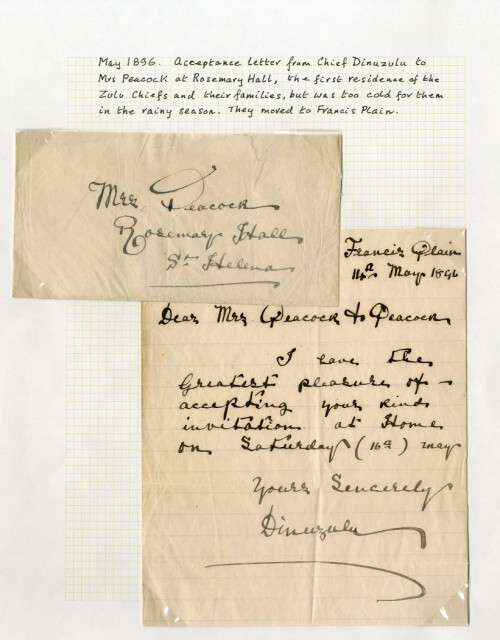 May 1896. Acceptance letter from Chief Dinuzulu to
Mrs Peacock at Rosemary Hall, the first residence of the
Zulu Chiefs and their families, but was too cold for them
in the rainy season. They moved to Francis Plain.
Mrs, Peacock
Rosemary Hall
St Helena
Francis Plain
14th May 1896
Dear Mrs Peacock & Peacock
I have the
Greatest pleasure of
accepting your kind
invitation at Home
on Saturday (16th) may
Yours Sencerely
Dinuzulu